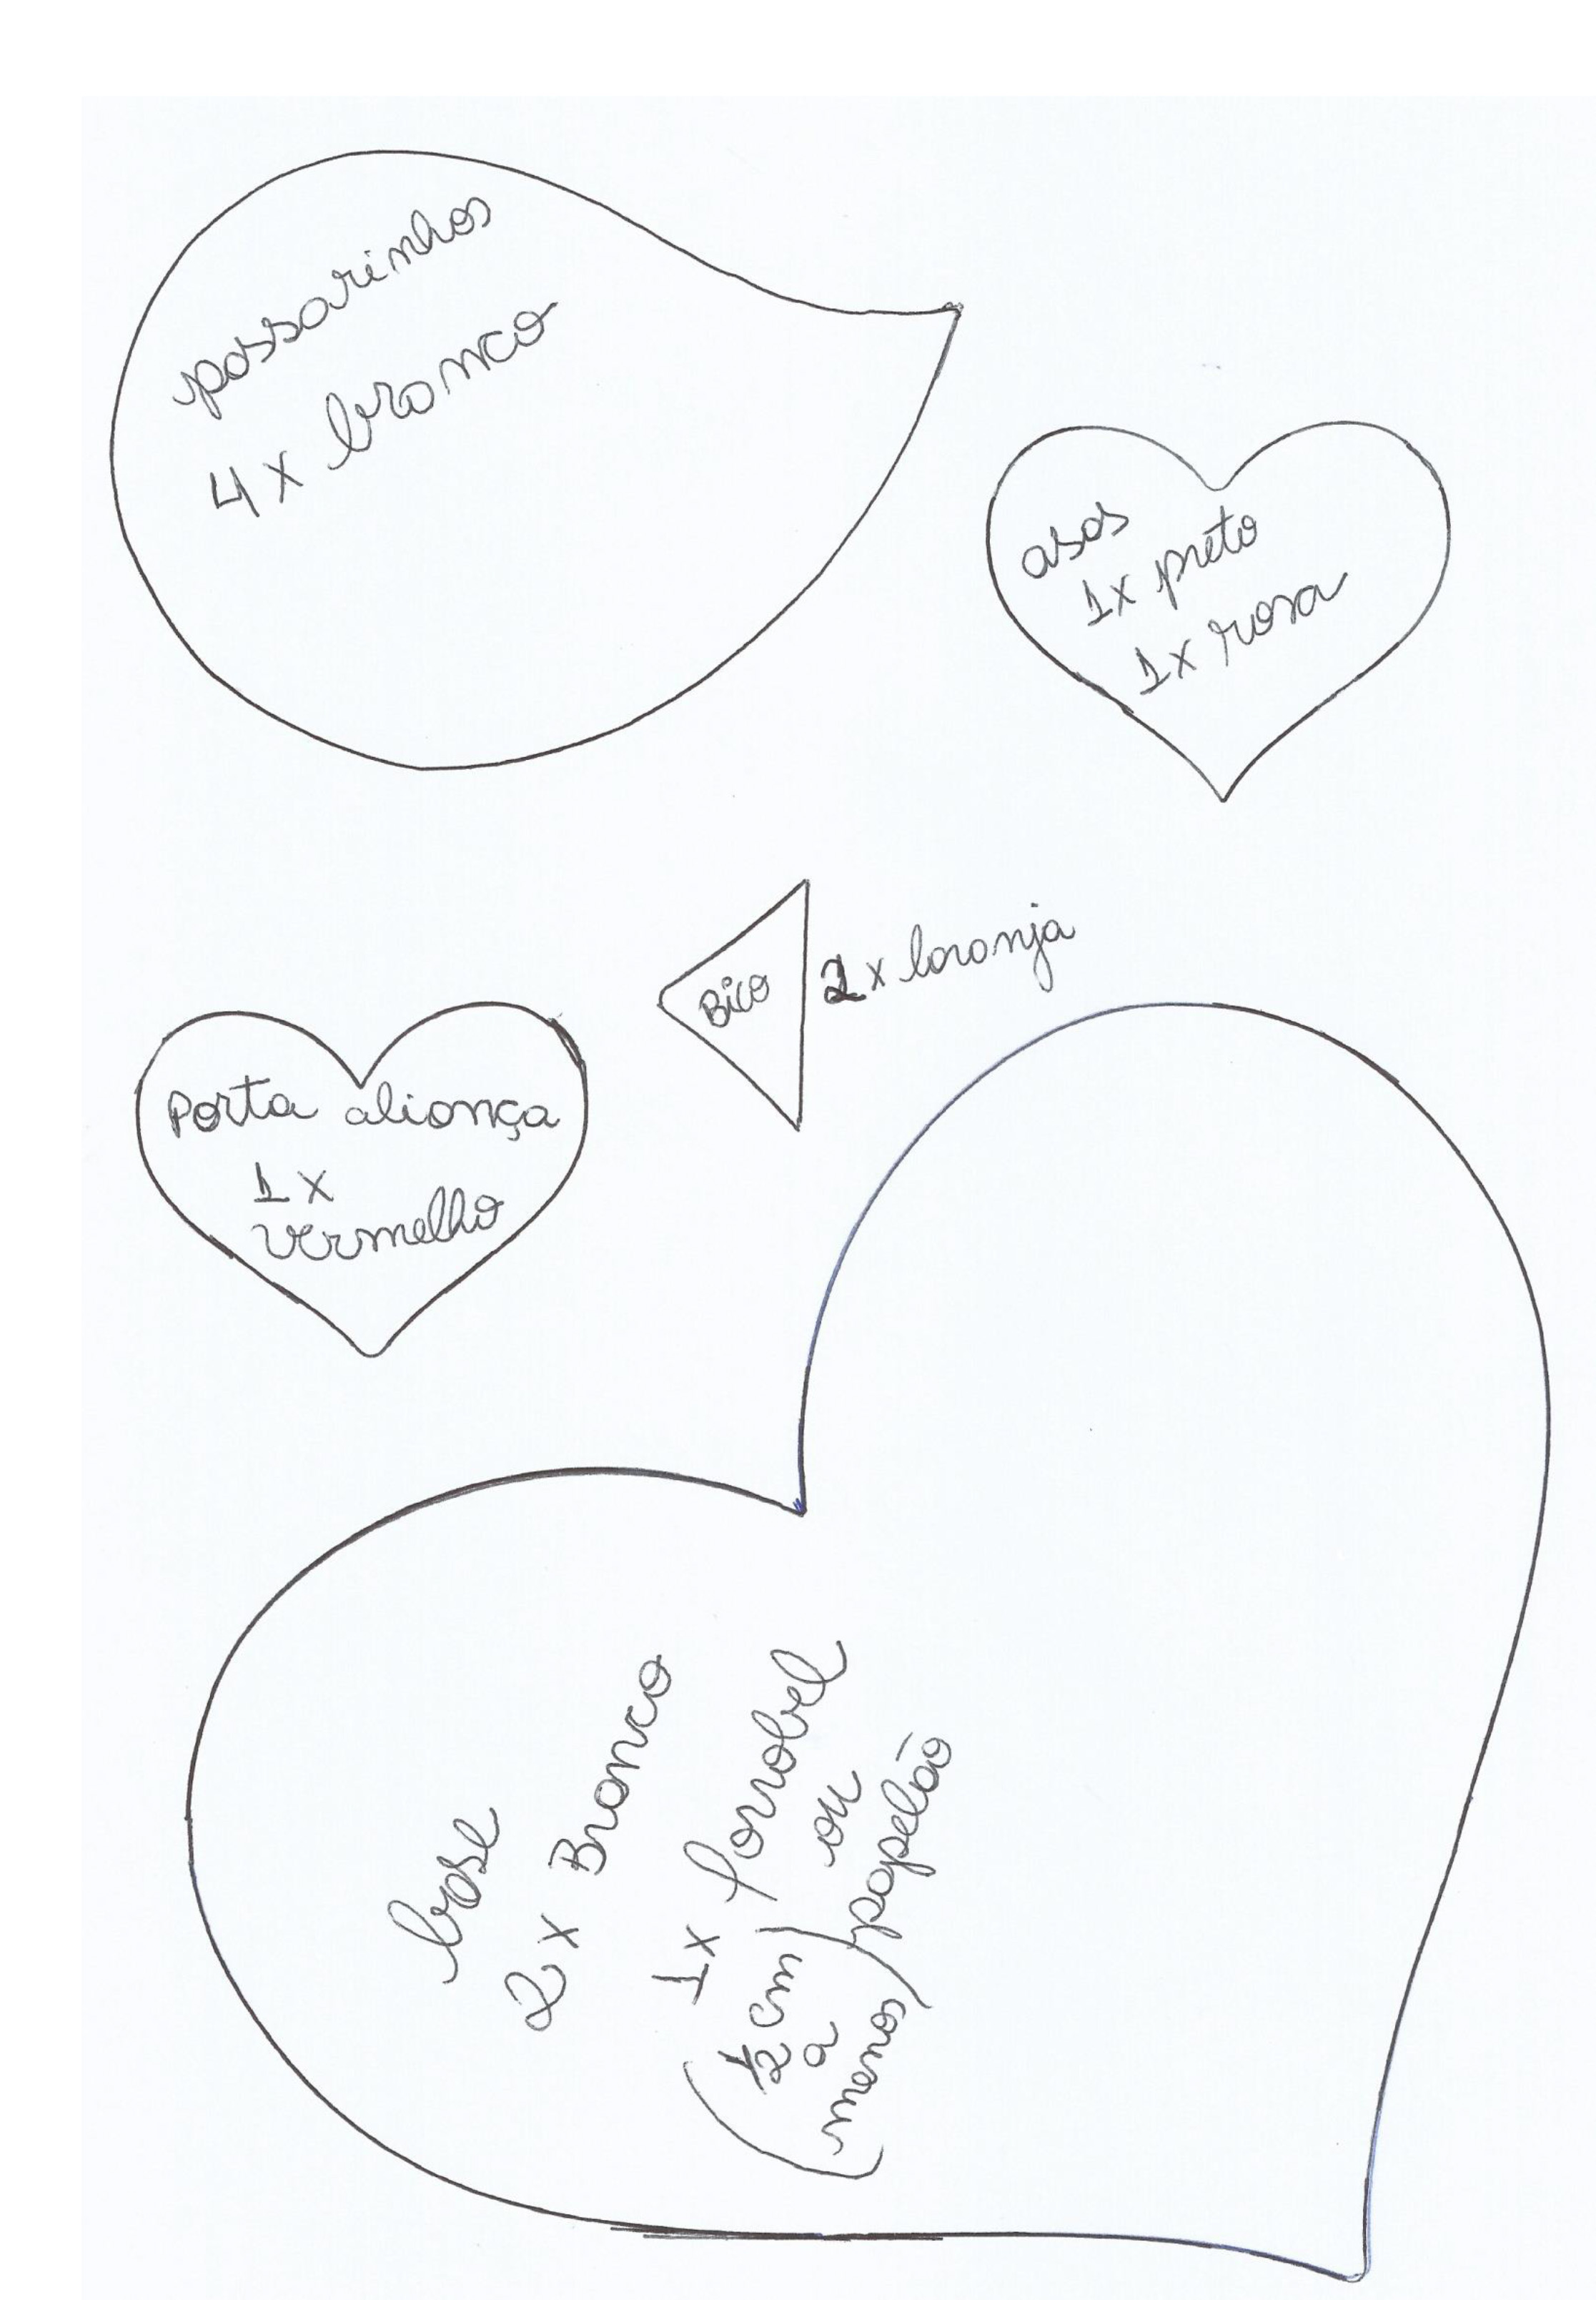 passarinhos
4x branco
asas
1x preto
1x rosa
Bico
2x laranja
Porta aliança
1x
vermelho
base
2x Branco
1x forrobel
ou
papelão
(½ cm
a
menos)